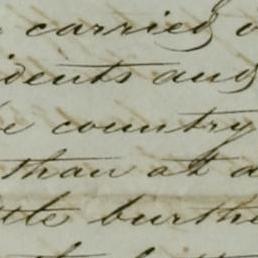 carried
idents and
country
than at
ttle burthe